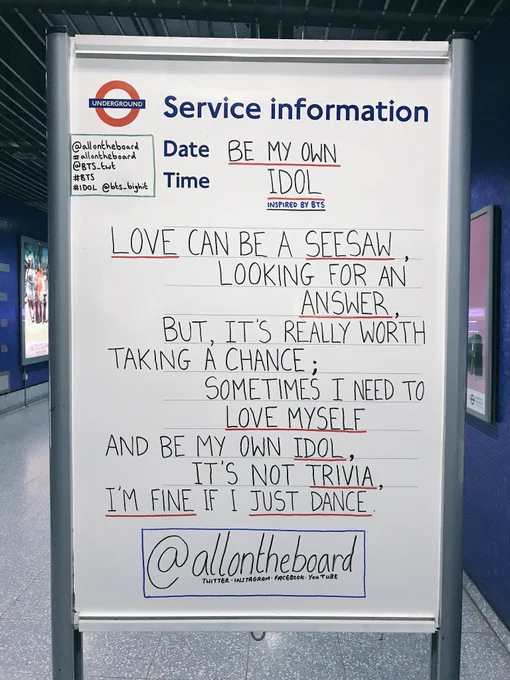 UNDERGROUND
Service information
@allontheboard
#allontheboard
@BTS_twt
#BTS
#IDOL @bts_bighit
Date BE MY OWN
Time IDOL
INSPIRED BY BTS
LOVE CAN BE A SEESAW,
LOOKING FOR AN
ANSWER,
BUT, IT'S REALLY WORTH
TAKING A CHANCE;
SOMETIMES I NEED TO
LOVE MYSELF
AND BE MY OWN IDOL,
IT'S NOT TRIVIA,
I'M FINE IF I JUST DANCE.
@allontheboard
TWITTER · INSTAGRAM · FACEBOOK · YOUTUBE